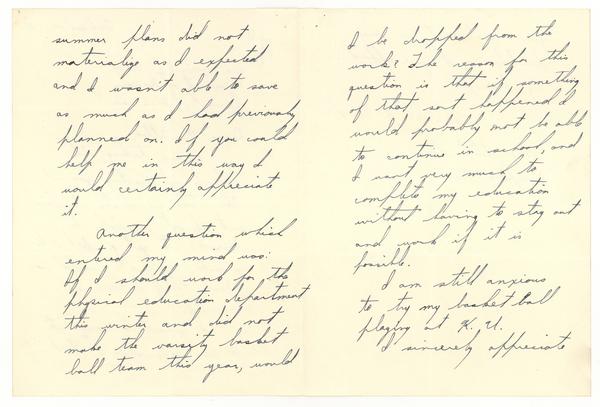 summer plans did not
materialize as I expected
and I wasn't able to save
as much as I had previously
planned on. If you could
help me in this way I
would certainly appreciate
it.
Another question which
entered my mind was:
If I should work for the
physical education department
this winter and did not
make the varsity basket
ball team this year, would
I be dropped from the
work? The reason for this
question is that if something
of that sort happened I
would probably not be able
to continue in school, and
I want very much to
complete my education
without having to stay out
and work if it is
possible.
I am still anxious
to try my basket ball
playing at K. U.
I sincerely appreciate